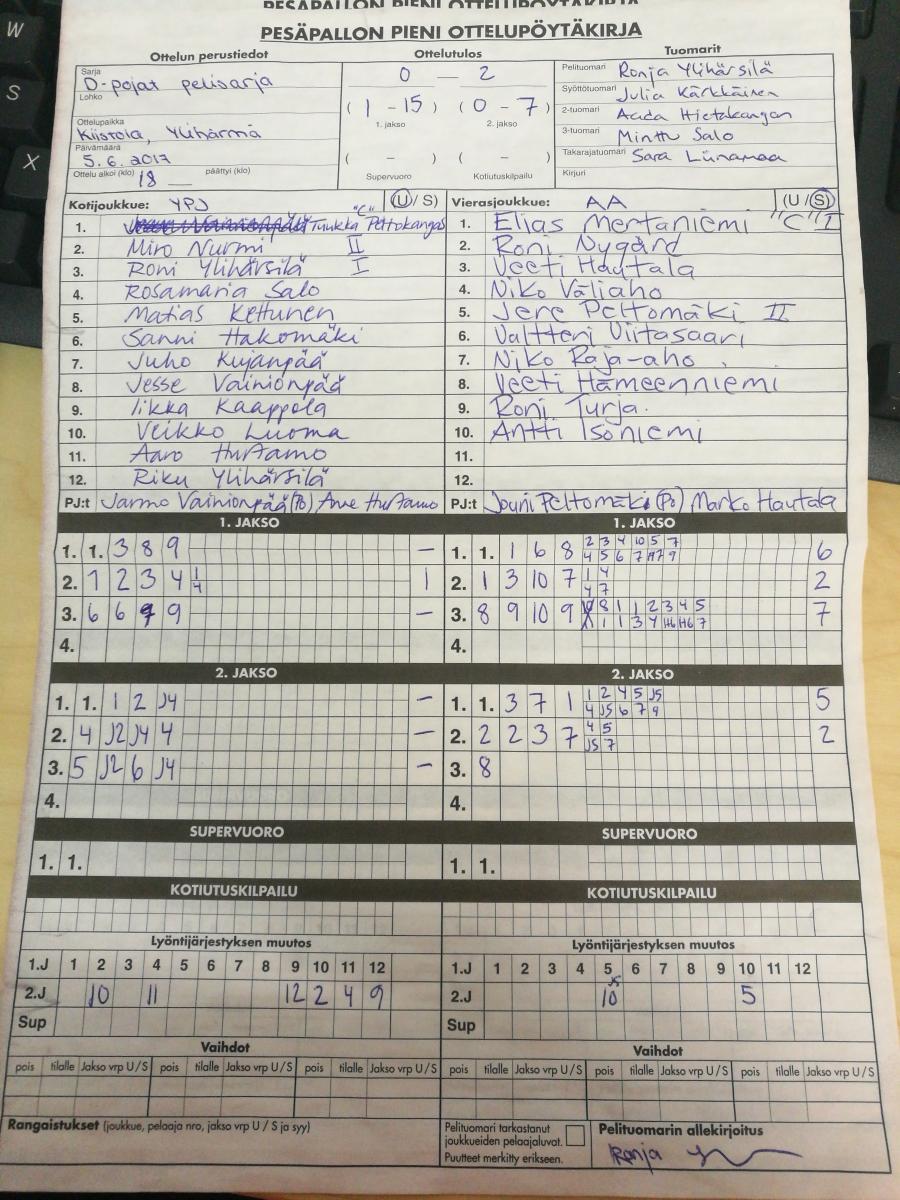 PESÄPALLON PIENI OTTELUPÖYTÄKIRJA
PESÄPALLON PIENI OTTELUPÖYTÄKIRJA
Ottelun perustiedot
Ottelutulos
Tuomarit
Sarja
D-pojat pelisarja
Lohko
Ottelupaikka
Kiistola, Ylihärmä
Päivämäärä
5.6.2017
Ottelu alkoi (klo) 18 — päättyi (klo)
0 — 2
(1 - 15) (0 - 7)
1. jakso 2. jakso
( - ) ( - )
Supervuoro Kotiutuskilpailu
Pelituomari Ronja Ylihärsilä
Syöttötuomari Julia Kärkkäinen
2-tuomari Hietakangan
3-tuomari Minttu Salo
Takarajatuomari Sara Liinamaa
Kirjuri
Kotijoukkue: YPJ (U / S)
1. Tuukka Peltokangas "C"
2. Miro Nurmi II
3. Roni Ylihärsilä I
4. Rosamaria Salo
5. Matias Kettunen
6. Sanni Hakomäki
7. Juho Kujanpää
8. Jesse Vainionpää
9. Iikka Kaappola
10. Veikko Luoma
11. Aaro Hurtamo
12. Riku Ylihärsilä
PJ:t Jarmo Vainionpää (Po) Hurtamo
Vierasjoukkue: AA (U / S)
1. Elias Mertaniemi "C" I
2. Roni Nygård
3. Veeti Hautala
4. Niko Väljaho
5. Jere Peltomäki II
6. Valtteri Viitasaari
7. Niko Raja-aho
8. Veeti Hämeenniemi
9. Roni Turja.
10. Antti Isoniemi
11.
12.
PJ:t Jouni Peltomäki (Po) Marko Hautala
1. JAKSO
1. 1. 3 8 9 —
2. 1 2 3 4 1 1
4
3. 6 6 9 9 —
4.
1. JAKSO
1. 1. 1 6 8 2 3 4 10 5 7 6
4 5 6 7 9
2. 1 3 10 7 1 4 2
4 7
3. 8 9 10 9 8 1 1 2 3 4 5 7
1 1 3 4 H6 H6 7
4.
2. JAKSO
1. 1. 1 2 J4 —
2. 4 J2 J4 4 —
3. 5 J2 6 J4 —
4.
2. JAKSO
1. 1. 3 7 1 1 2 4 5 J5 5
4 J5 6 7 9
2. 2 2 3 7 4 5 2
J5 7
3. 8
4.
SUPERVUORO
1. 1.
SUPERVUORO
1. 1.
KOTIUTUSKILPAILU
KOTIUTUSKILPAILU
Lyöntijärjestyksen muutos
1.J 1 2 3 4 5 6 7 8 9 10 11 12
2.J 10 11 12 2 4 9
Sup
Lyöntijärjestyksen muutos
1.J 1 2 3 4 5 6 7 8 9 10 11 12
2.J J5 10 5
Sup
Vaihdot
pois tilalle Jakso vrp U / S pois tilalle Jakso vrp U / S pois tilalle Jakso vrp U / S
Vaihdot
pois tilalle Jakso vrp U / S pois tilalle Jakso vrp U / S pois tilalle Jakso vrp U / S
Rangaistukset (joukkue, pelaaja nro, jakso vrp U / S ja syy)
Pelituomari tarkastanut
joukkueiden pelaajaluvat.
Puutteet merkitty erikseen.
Pelituomarin allekirjoitus
Ronja
W
S
X